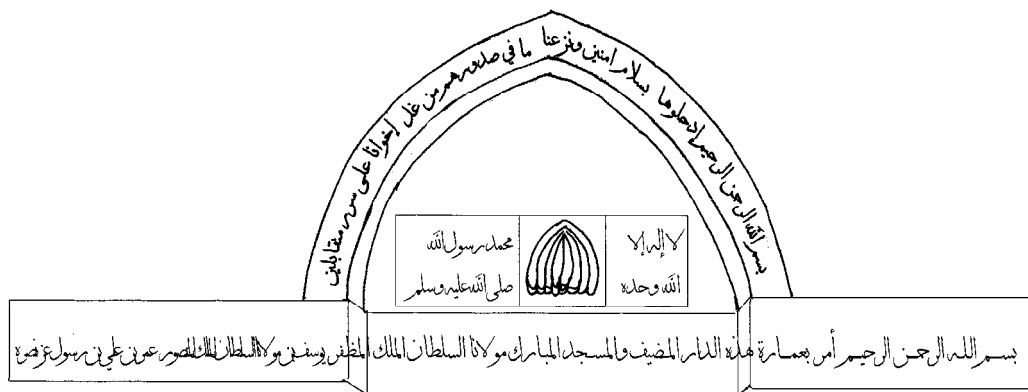 بسم الله الرحمن الرحيم ادخلوها بسلام امنين ونزعنا ما في صدورهم من غل إخوانا على سرر متقابلين
لا إله إلا
الله وحده
محمد رسول الله
صلى الله عليه وسلم
بسم الله الرحمن الرحيم أمر بعمارة هذه الدار المضيف والمسجد المبارك مولانا السلطان الملك المظفر يوسف بن مولانا السلطان الملك المنصور عمر بن علي بن رسول عز نصره